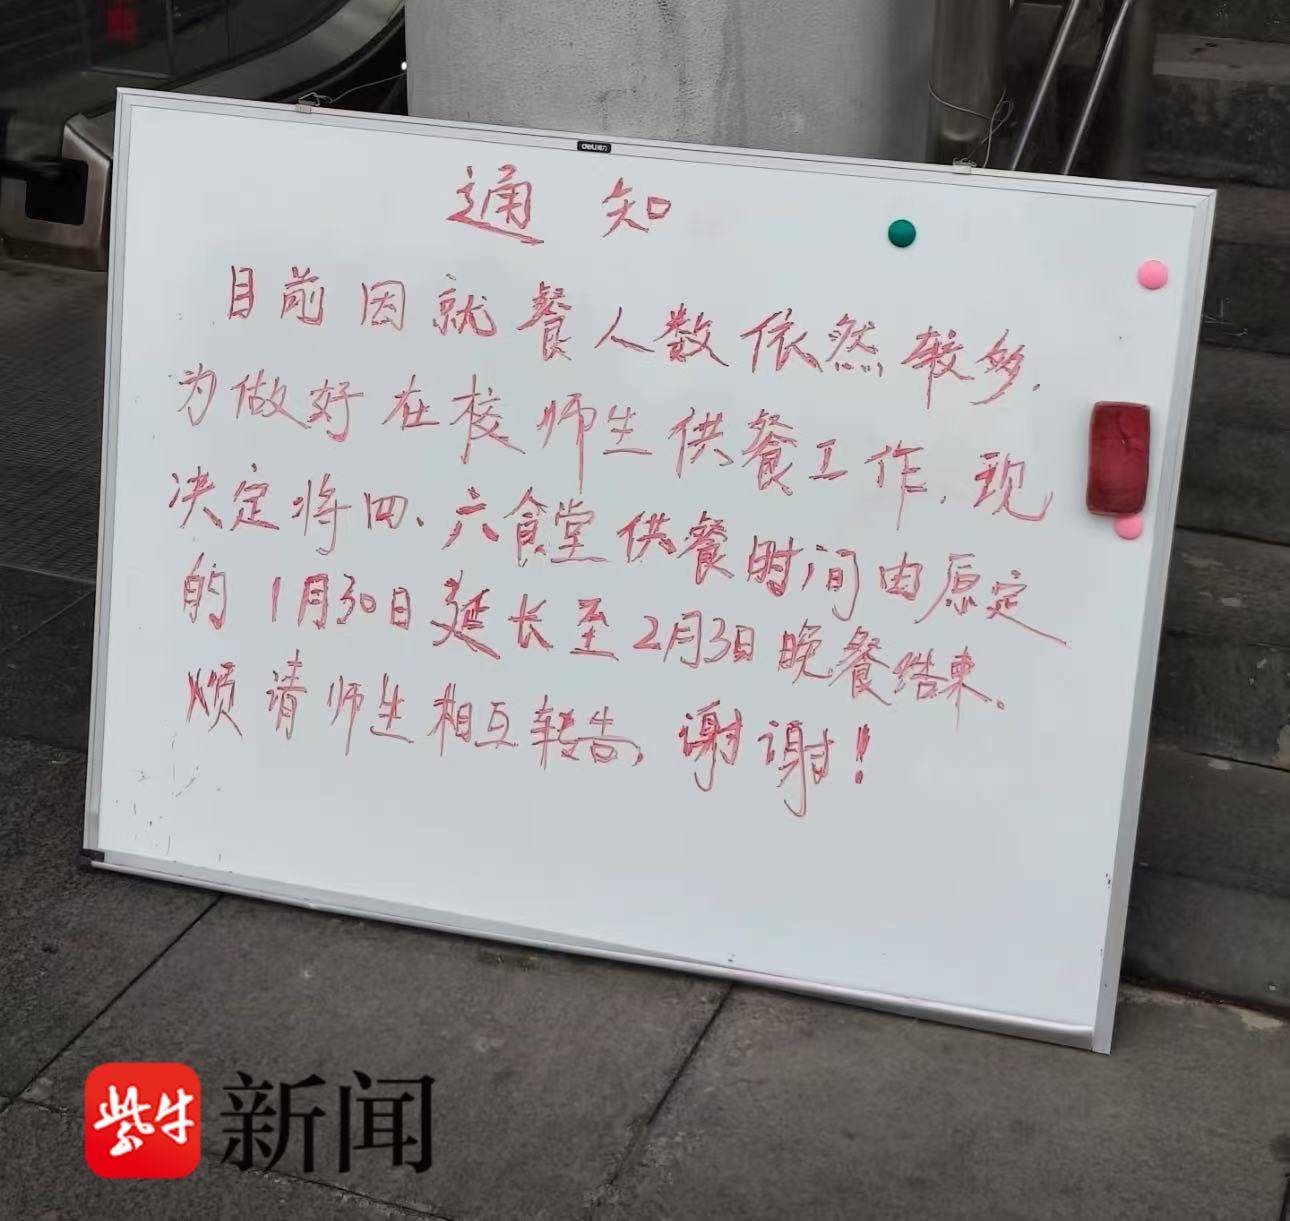 deli得力
通知
目前因就餐人数依然较多,
为做好在校师生供餐工作,现
决定将四、六食堂供餐时间由原定
的1月30日延长至2月3日晚餐结束。
烦请师生相互转告,谢谢!
紫牛新闻